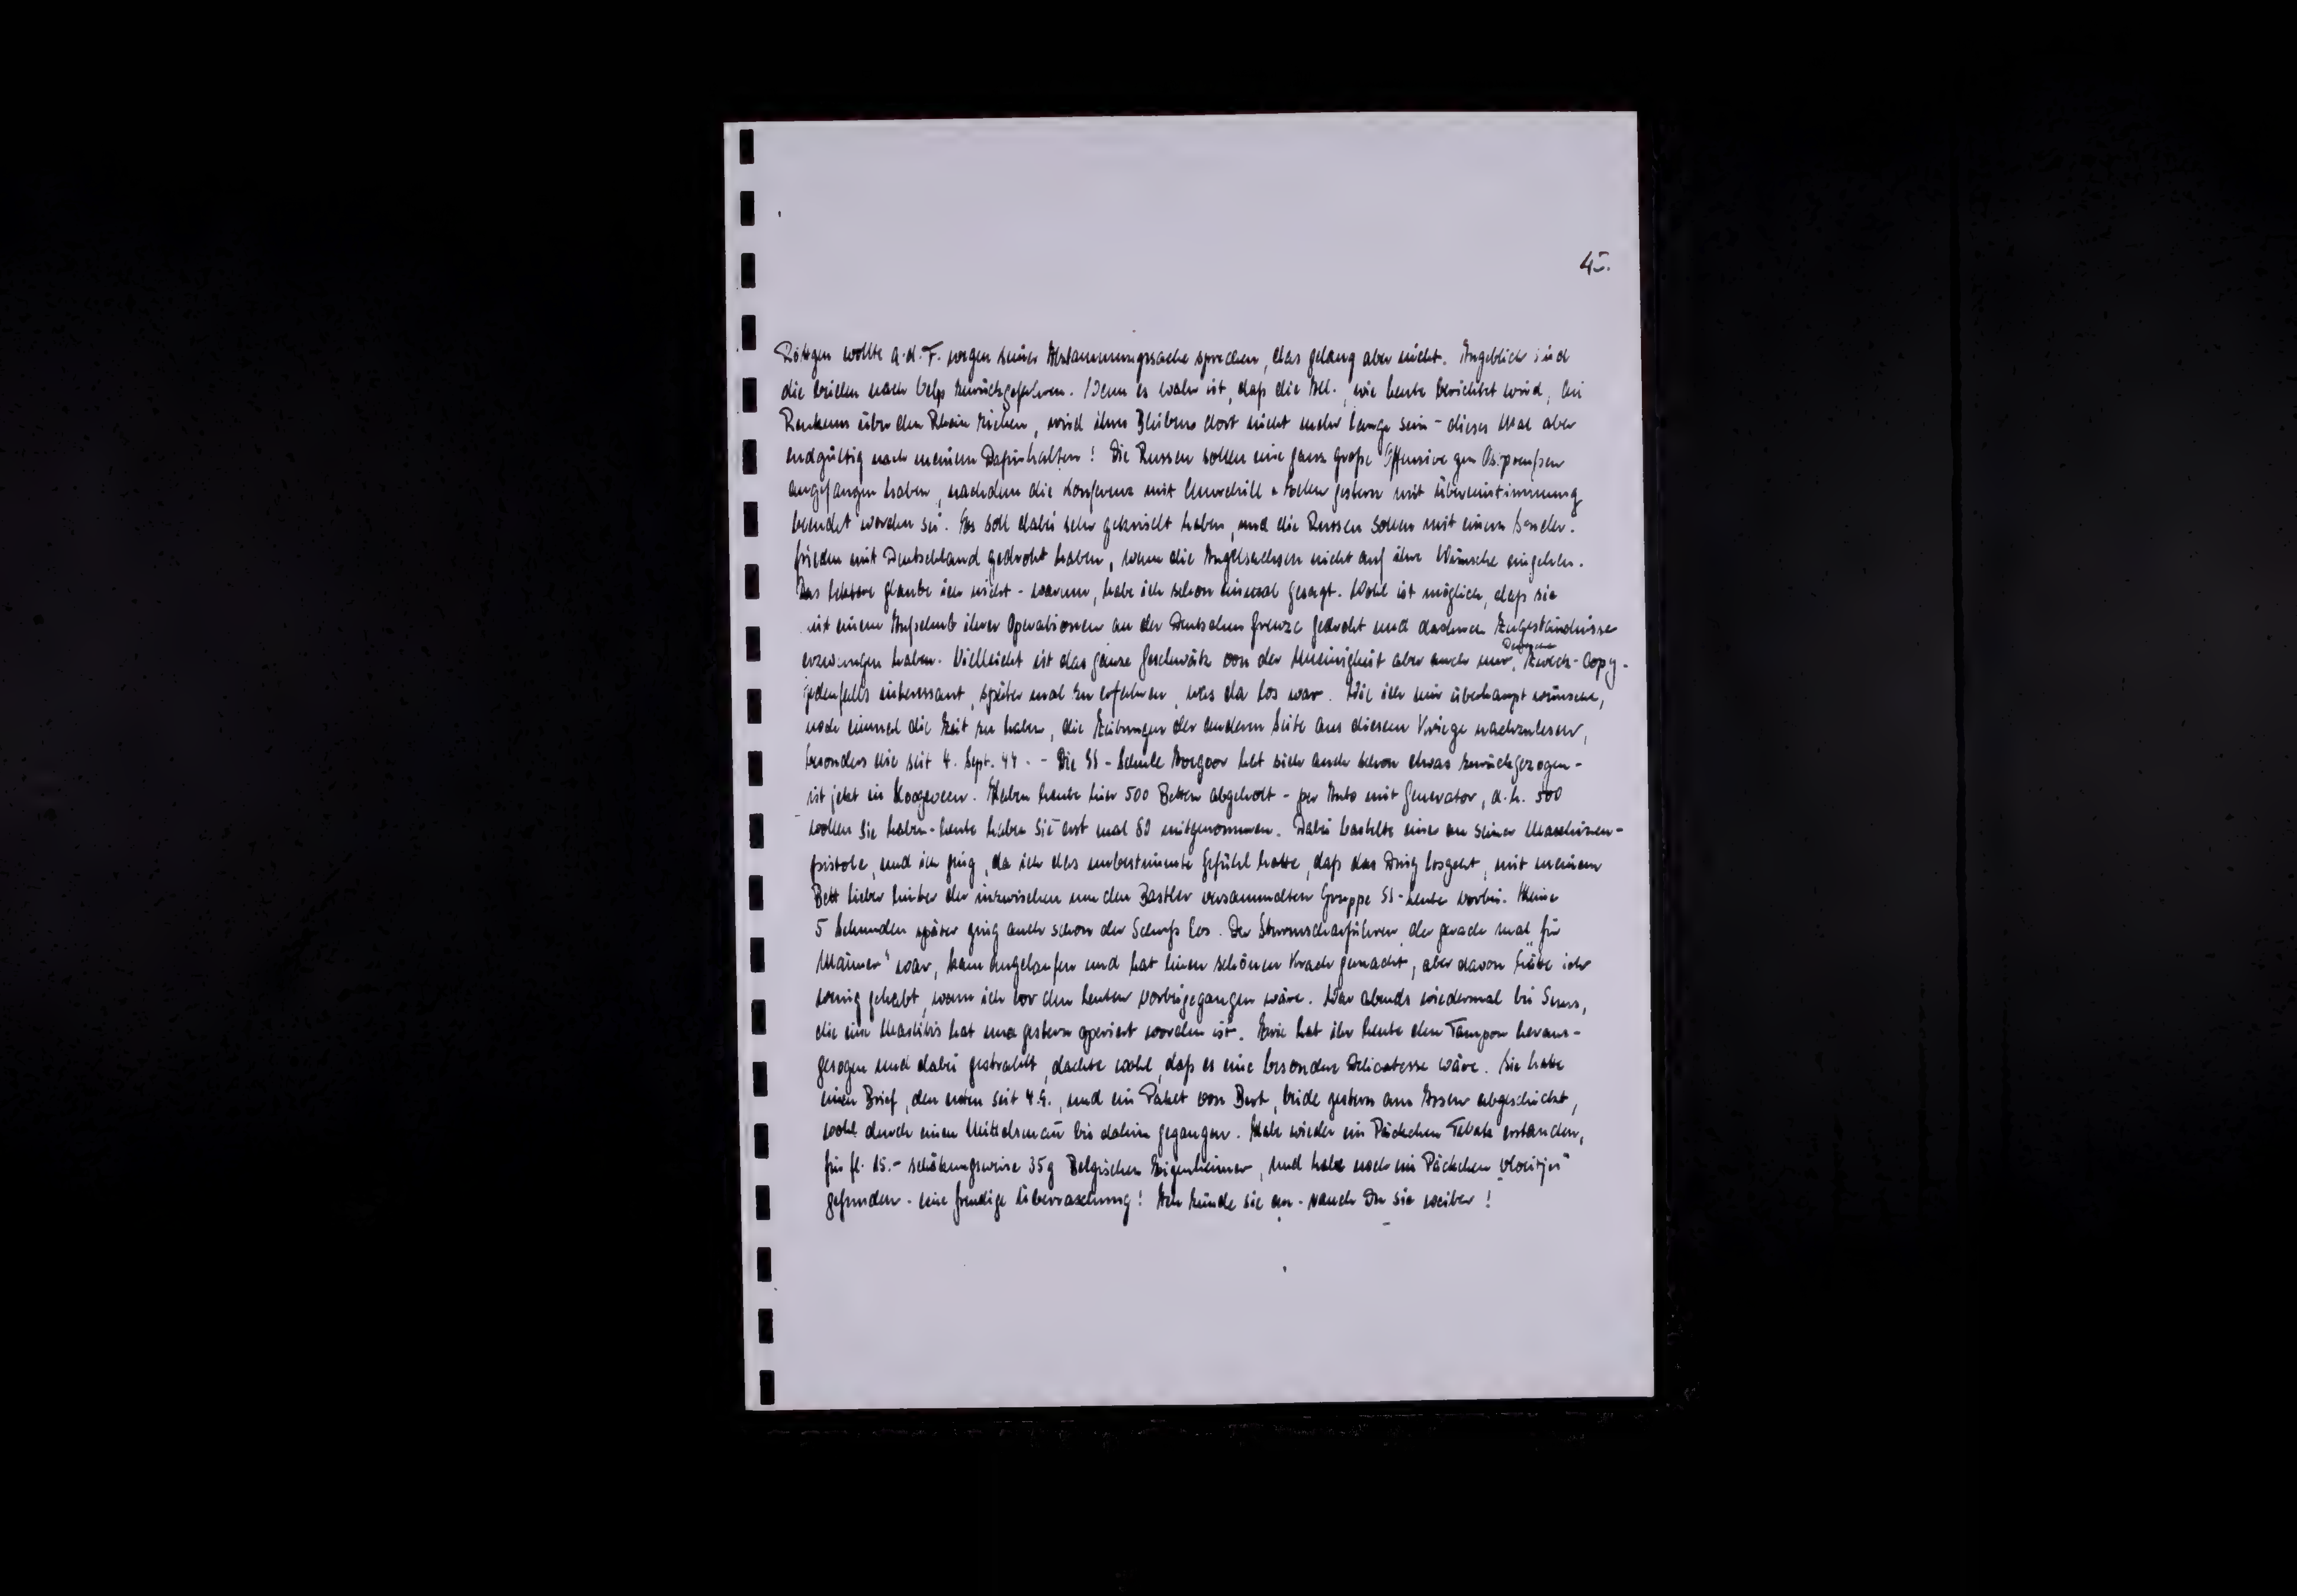 45.
Röttgen wollte a.d.F. wegen seiner Abstammungssache sprechen, das gelang aber nicht. Angeblich sind
die beiden nach Velp zurückgefahren. Wenn es wahr ist, daß die All., wie heute berichtet wird, bei
Renkum über den Rhein ziehen, wird ihres Bleibens dort nicht mehr lange sein - dieses Mal aber
endgültig nach meinem Dafürhalten! Die Russen sollen eine ganz große Offensive gen Ostpreußen
angefangen haben, nachdem die Konferenz mit Churchill + Eden gestern mit Übereinstimmung
beendet worden sei. Es soll dabei sehr gekriselt haben, und die Russen sollen mit einem Sonder-
frieden mit Deutschland gedroht haben, wenn die Angelsachsen nicht auf ihre Wünsche eingehen.
Das letztere glaube ich nicht - warum, habe ich schon einmal gesagt. Wohl ist möglich, daß sie
mit einem Aufschub ihrer Operationen an der Deutschen Grenze gedroht und dadurch Zugeständnisse
erzwungen haben. Vielleicht ist das ganze Geschwätz von der Uneinigkeit aber auch nur Zweck-Copy -
jedenfalls interessant, später mal zu erfahren, was da los war. Wie ich mir überhaupt wünsche,
noch einmal die Zeit zu haben, die Zeitungen der anderen Seite aus diesem Kriege nachzulesen,
besonders die seit 4. Sept. 44. - Die SS-Schule Avegoor hat sich auch schon etwas zurückgezogen -
ist jetzt in Hoogeveen. Haben heute hier 500 Betten abgeholt - per Auto mit Generator, d.h. 500
wollen sie haben - heute haben sie erst mal 80 mitgenommen. Dabei bastelte einer an seiner Maschinen-
pistole, und ich ging, da ich das unbestimmte Gefühl hatte, daß das Ding losgeht, mit meinem
Bett lieber hinter der inzwischen um den Bastler versammelten Gruppe SS-Leute vorbei. Keine
5 Sekunden später ging auch schon der Schuß los. Der Sturmscharführer, der gerade mal „für
Männer" war, kam angelaufen und hat einen schönen Krach gemacht, aber davon hätte ich
wenig gehabt, wenn ich vor den Leuten vorbeigegangen wäre. War abends wiedermal bei Suus,
die eine Mastitis hat und gestern operiert worden ist. hat ihr heute den Tampon heraus-
gezogen und dabei gestrahlt, dachte wohl, daß es eine besondere Delicatesse wäre. Sie hatte
einen Brief, den ersten seit 4.9., und ein Paket von Bert, beide gestern aus Assen abgeschickt,
wohl durch einen Mittelsmann bis dahin gegangen. Habe wieder ein Päckchen Tabak erstanden,
für fl. 15.- schätzungsweise 35g Belgischen Eigenheimer, und habe noch ein Päckchen „vloeitjes"
gefunden - eine freudige Überraschung! Ich zünde sie an - rauch Du sie weiter!